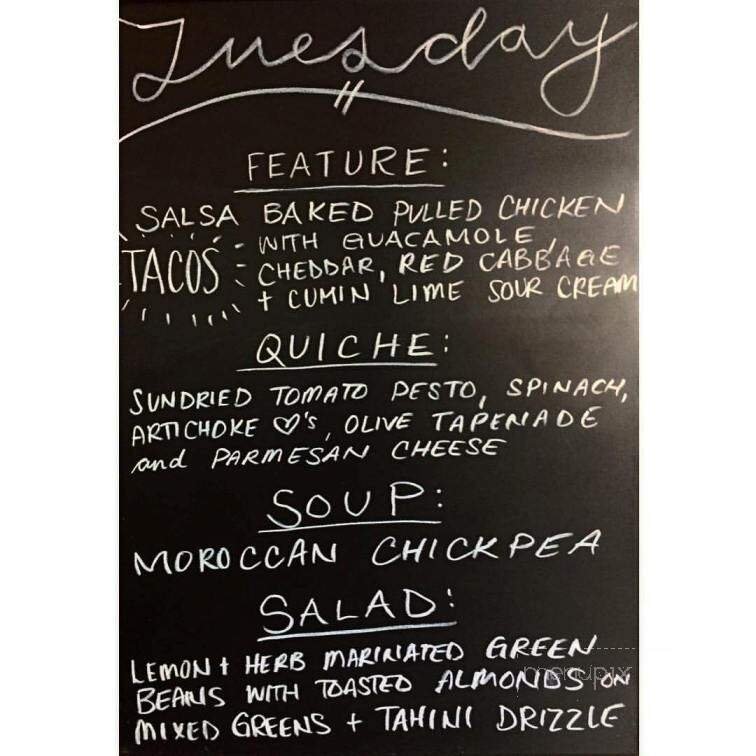 Tuesday
FEATURE:
SALSA BAKED PULLED CHICKEN
TACOS - WITH GUACAMOLE,
CHEDDAR, RED CABBAGE
+ CUMIN LIME SOUR CREAM
QUICHE:
SUNDRIED TOMATO PESTO, SPINACH,
ARTICHOKE ♡'s, OLIVE TAPENADE
and PARMESAN CHEESE
SOUP:
MOROCCAN CHICKPEA
SALAD:
LEMON + HERB MARINATED GREEN
BEANS WITH TOASTED ALMONDS ON
MIXED GREENS + TAHINI DRIZZLE
menupix